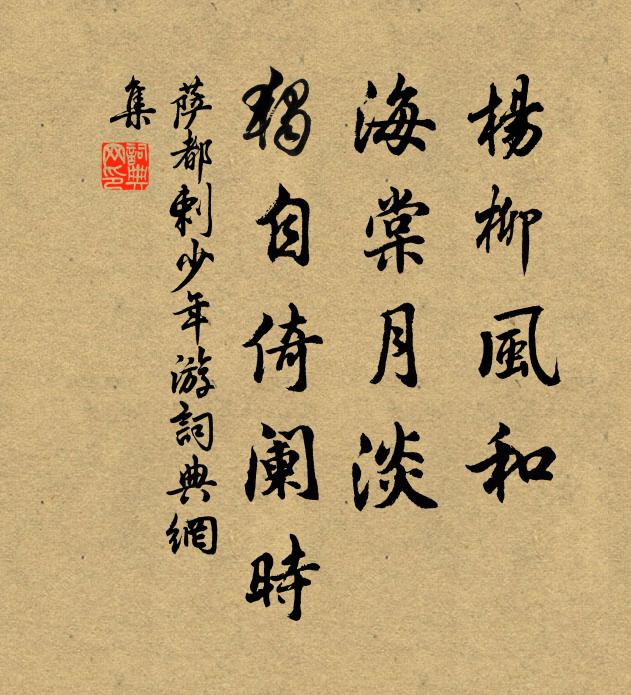 楊柳風和
海棠月淡
獨自倚闌時
薩都剌少年游詞典網
集
詞典網印